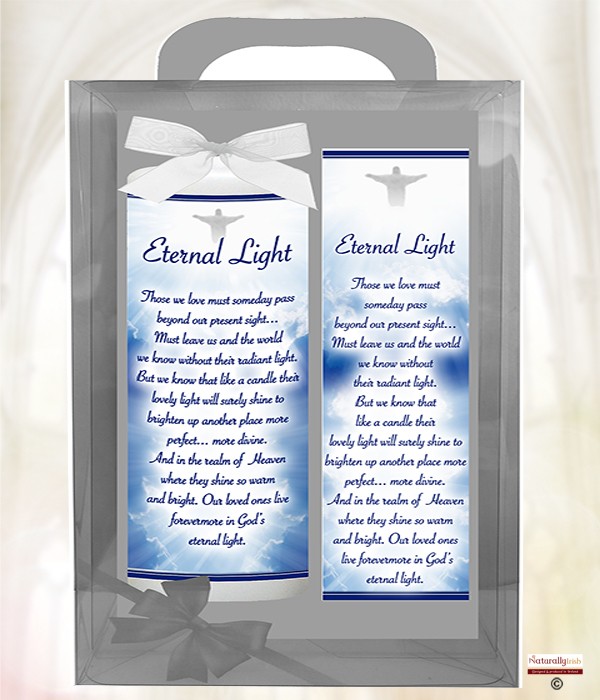 Eternal Light
Those we love must someday pass
beyond our present sight...
Must leave us and the world
we know without their radiant light.
But we know that like a candle their
lovely light will surely shine to
brighten up another place more
perfect... more divine.
And in the realm of Heaven
where they shine so warm
and bright. Our loved ones live
forevermore in God's
eternal light.
Eternal Light
Those we love must
someday pass
beyond our present sight...
Must leave us and the world
we know without
their radiant light.
But we know that
like a candle their
lovely light will surely shine to
brighten up another place more
perfect... more divine.
And in the realm of Heaven
where they shine so warm
and bright. Our loved ones
live forevermore in God's
eternal light.
NaturallyIrish
©